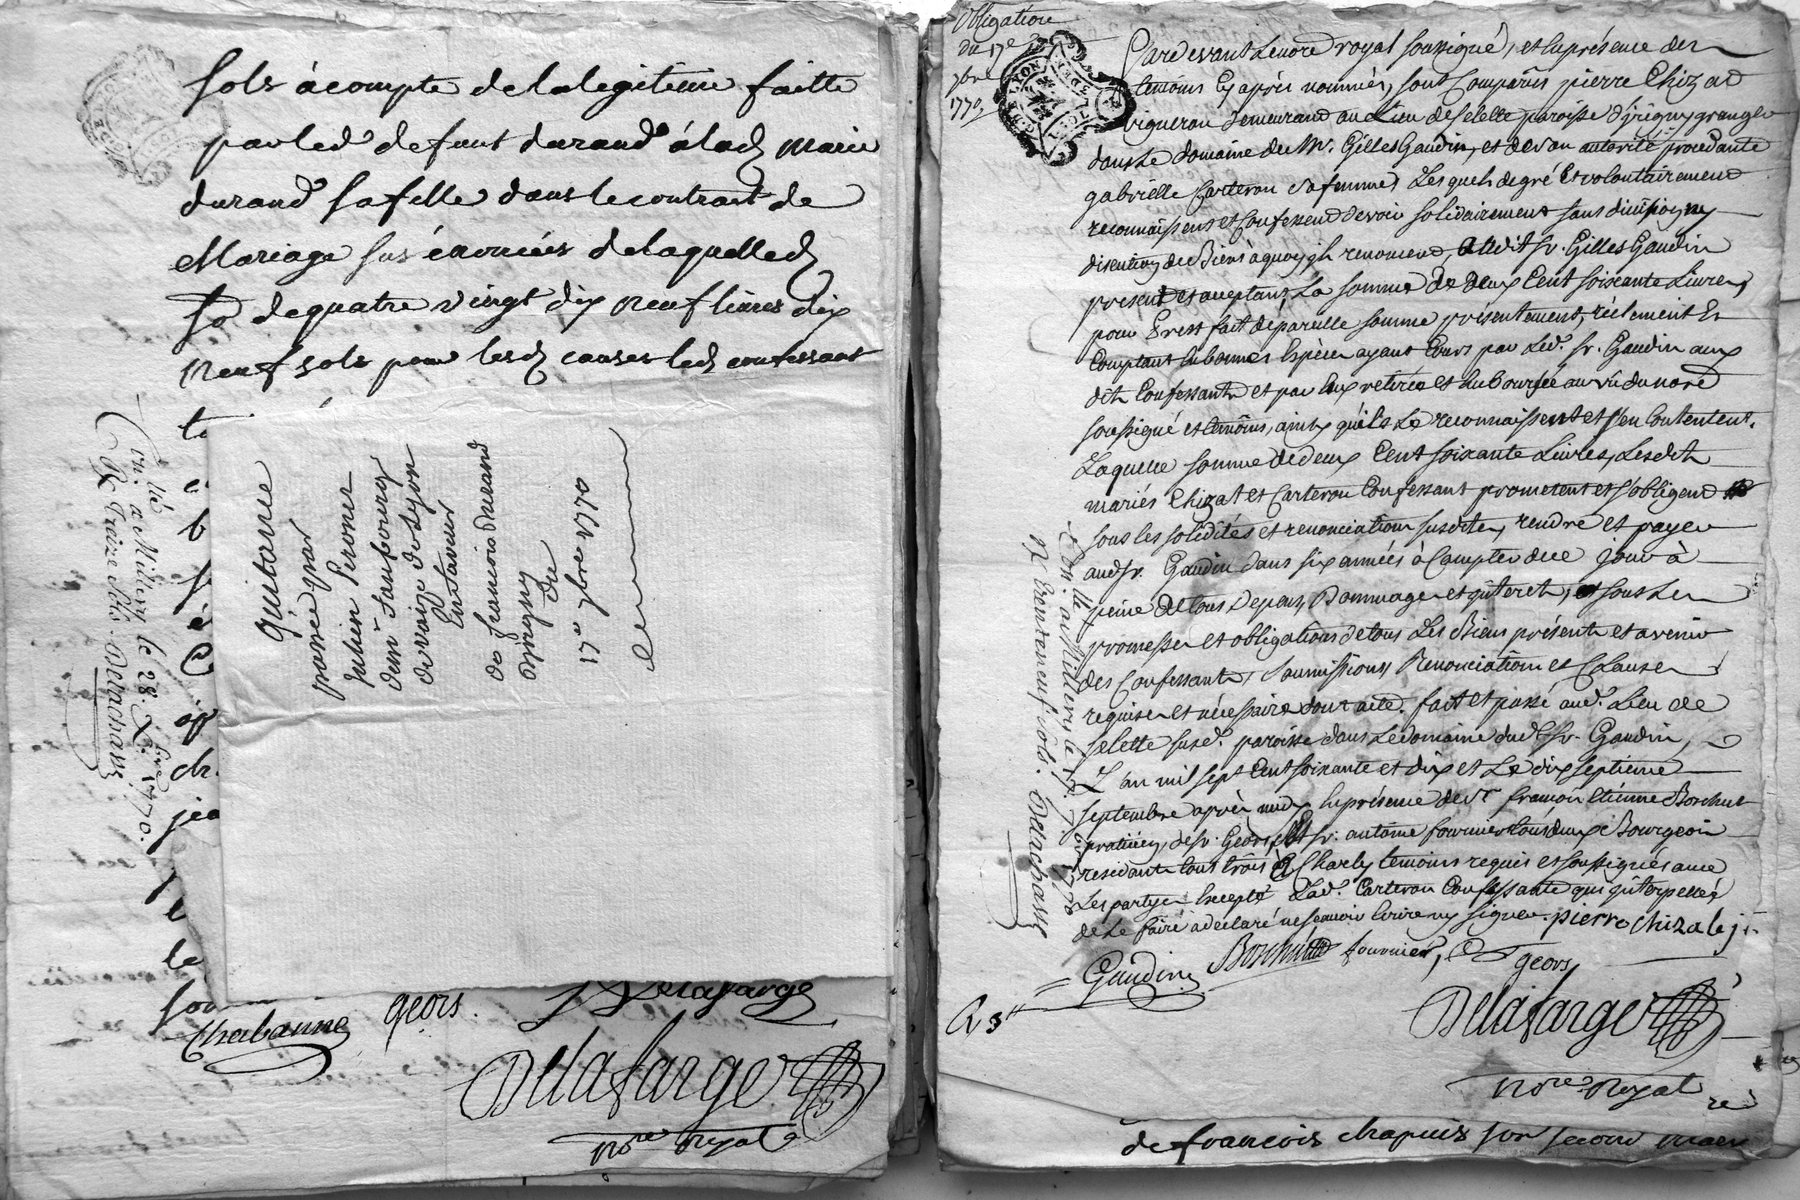 sols àcompte de la legitime faitte
par led defunt durand à lad marie
durand sa fille dans le contract de
Mariage sus énoncées de laquelle d
de quatre vingt dix neuf livres dix
neuf sols pour lesd causes led confessant
quitance
passée par
julien perone
dem.t faubourg
de vaize de Lyon
En faveur
de francois durand
dyrigny
Du
17e 7bre 1770
Con.lé à Millery le 28. Xbre 1770.
RC treize sols. Delachasse
Chabanne geors. Delafarge
Delafarge
no.re Royal
Obligation
du 17e
7bre
1770
Pardevant Le no.re royal soussigné, et en présence des
témoins Cy après nommés, sont Comparus pierre Chizat
vigneron demeurant au Lieu de selette paroisse d'irigny granger
dans le domaine du Mr. Gilles Gaudin, et de son autorité procedante
gabrielle Carteron sa femme, Lesquels de gré Et volontairement
reconnaissent et Confessent devoir solidairement sans division ny
discution de Biens à quoy ils renoncent, audit sr. Gilles Gaudin
present et acceptant, La somme de deux Cent soixante Livres,
pour Prest fait de pareille somme présentement, réelement Et
Comptant En bonnes Espèces ayant Cours par Led. sr. Gaudin aux
dits Confessants et par Eux retirée et Emboursée au vû du no.re
soussigné et témoins, ainsy qu'ils Le reconnaissent et s'en Contentent.
Laquelle somme de deux Cent soixante Livres, Lesdits
mariés Chizat et Carteron Confessant prometent et s'obligent
sous les solidités et renonciation susdites, rendre et payer
aud. sr. Gaudin dans six années à Compter de ce jour à
peine de tous Depens, Dommages et interets, et sous Les
promesses et obligations de tous Les Biens présents et avenir
des Confessants, soumissions Renonciations et Clauses
requises et nécessaires dont acte. fait et passé aud. Lieu de
selette susd. paroisse dans Le domaine dud. Sr. Gaudin,
L'an mil sept Cent soixante et dix et Le dix septieme
septembre après midy En présence de sr francois Etienne Borchut
praticien, de sr. Geors, Et sr. antoine fournier tous deux Bourgeois
residants tous trois à Charly témoins requis et soussignés avec
Les partyes Excepté Lad. Carteron Confessante qui interpellée
de Le faire a declaré ne scavoir Ecrire ny signer. pierre chizale
Gaudin Borchut fournier, geors,
Delafarge
no.re Royal
Con.lé à Millery le 7bre 1770
RC trente neuf sols. Delachasse
R 3tt
de francois chapuis son second mary